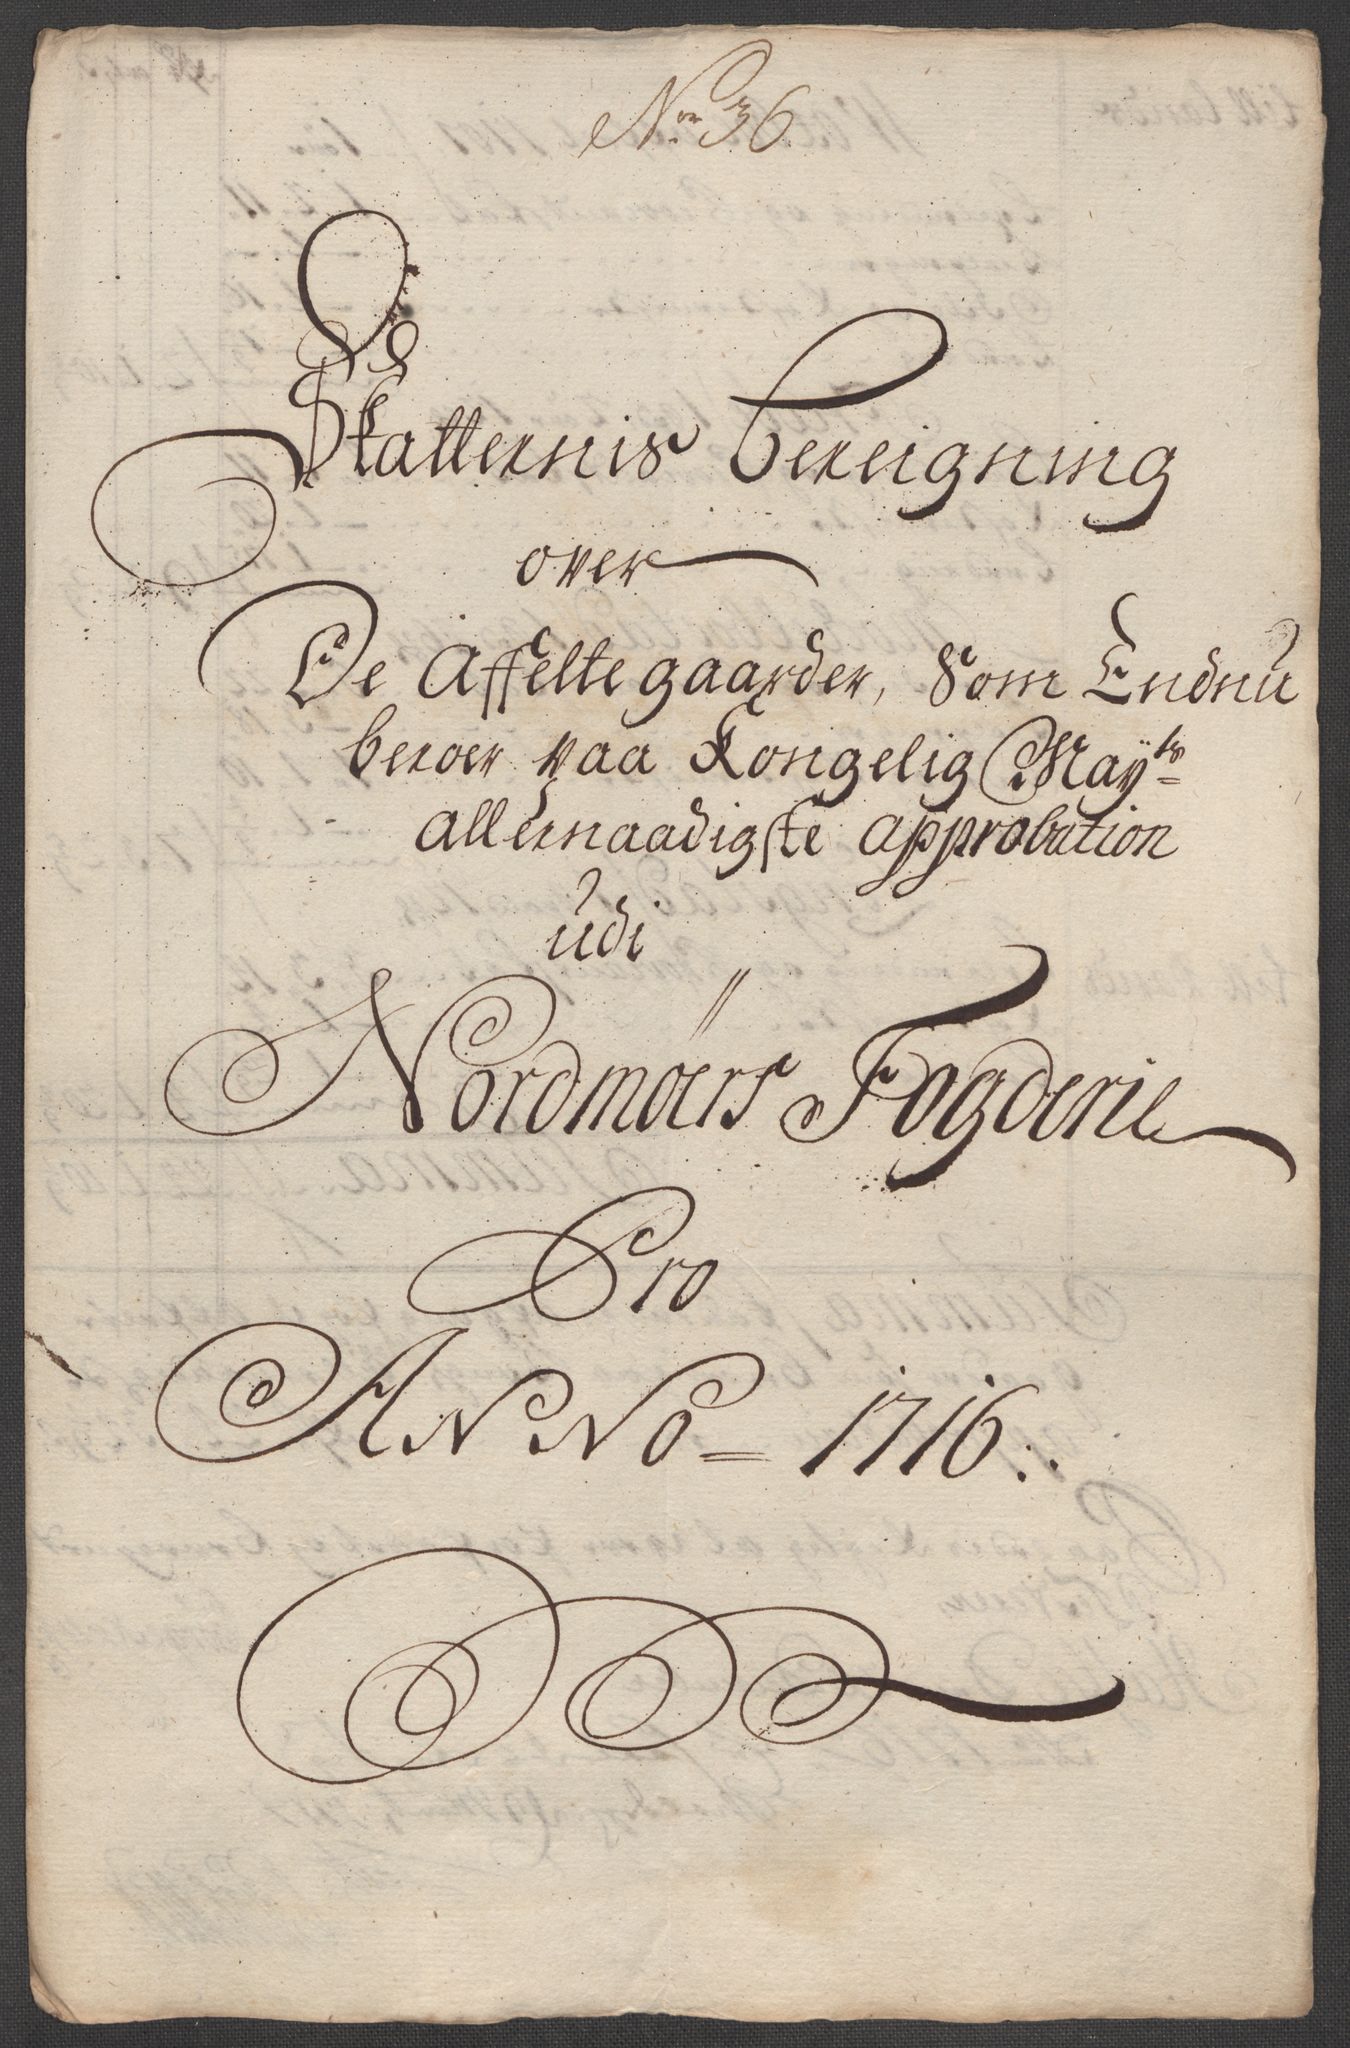 No 36
Skatternis bereigning
over
De Affelte gaarder, som Endnu
beroer paa Kongelig Mayts
allernaadigste approbation
udi
Nordmöers Fogderie
Pro
ANNO = 1716.